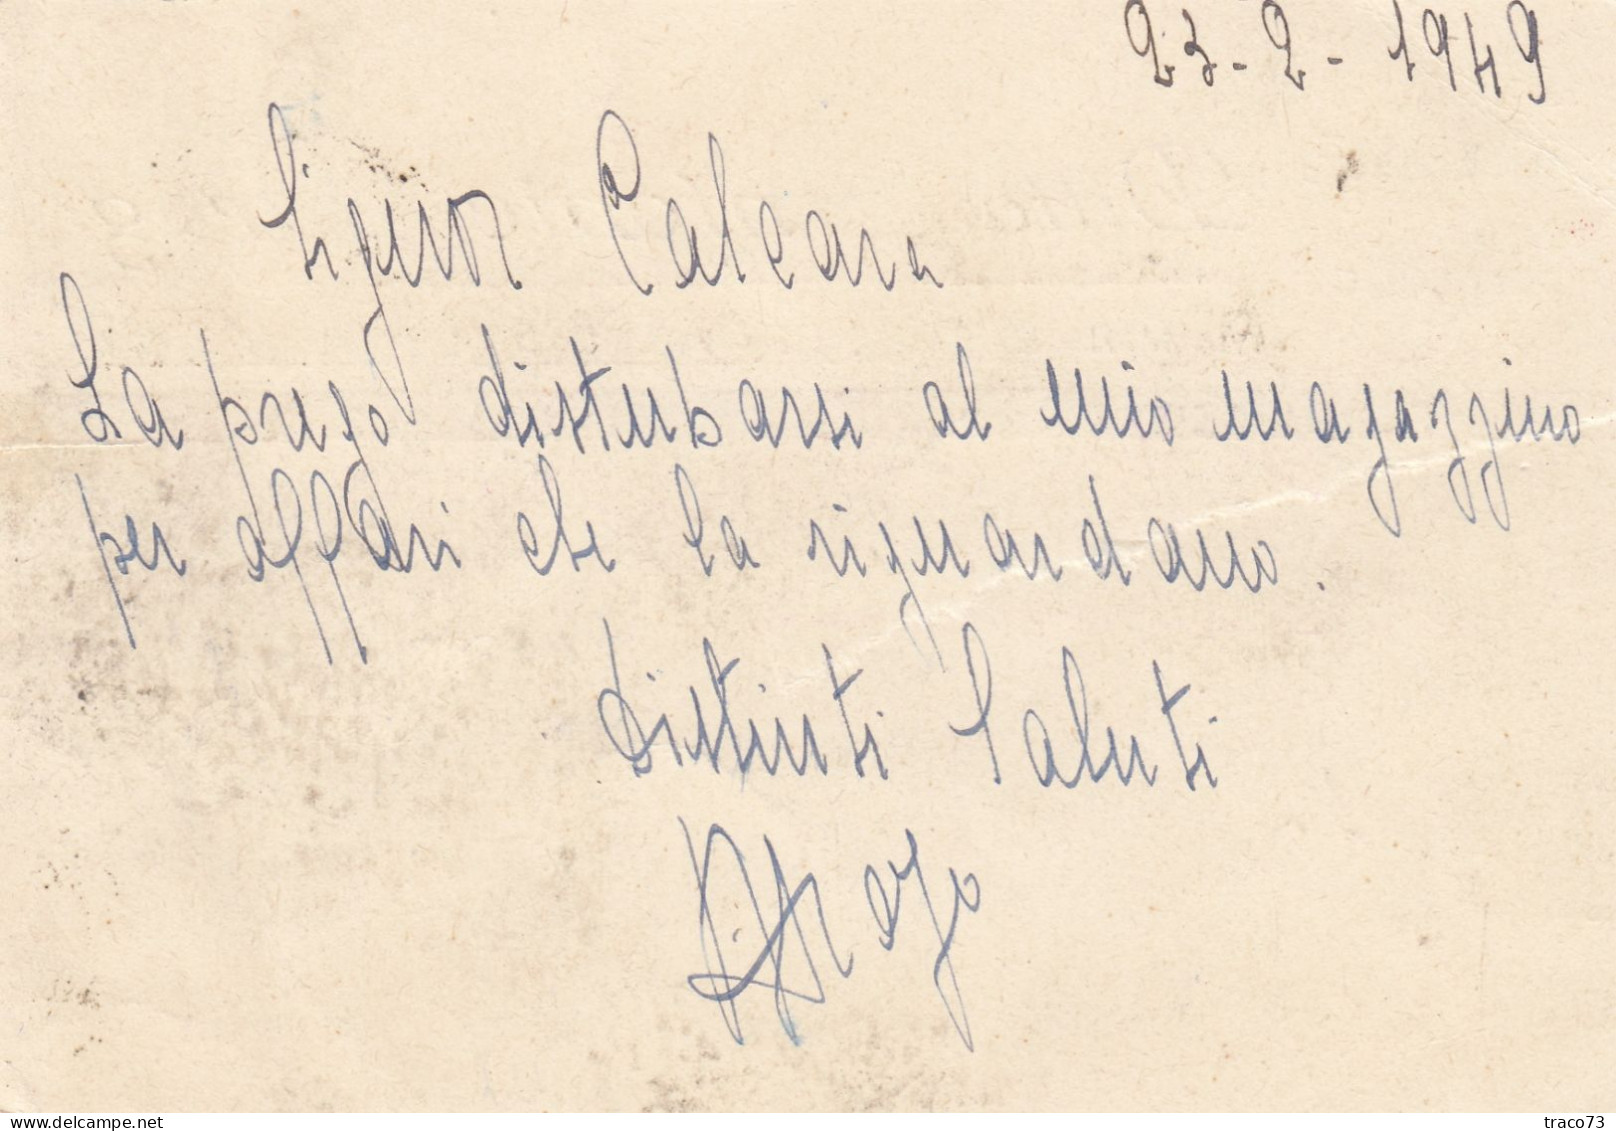 23-2-1949
Signor Calcara
La prego disturbarsi al mio magazzino
per affari che la riguardano.
Distinti Saluti
traco73